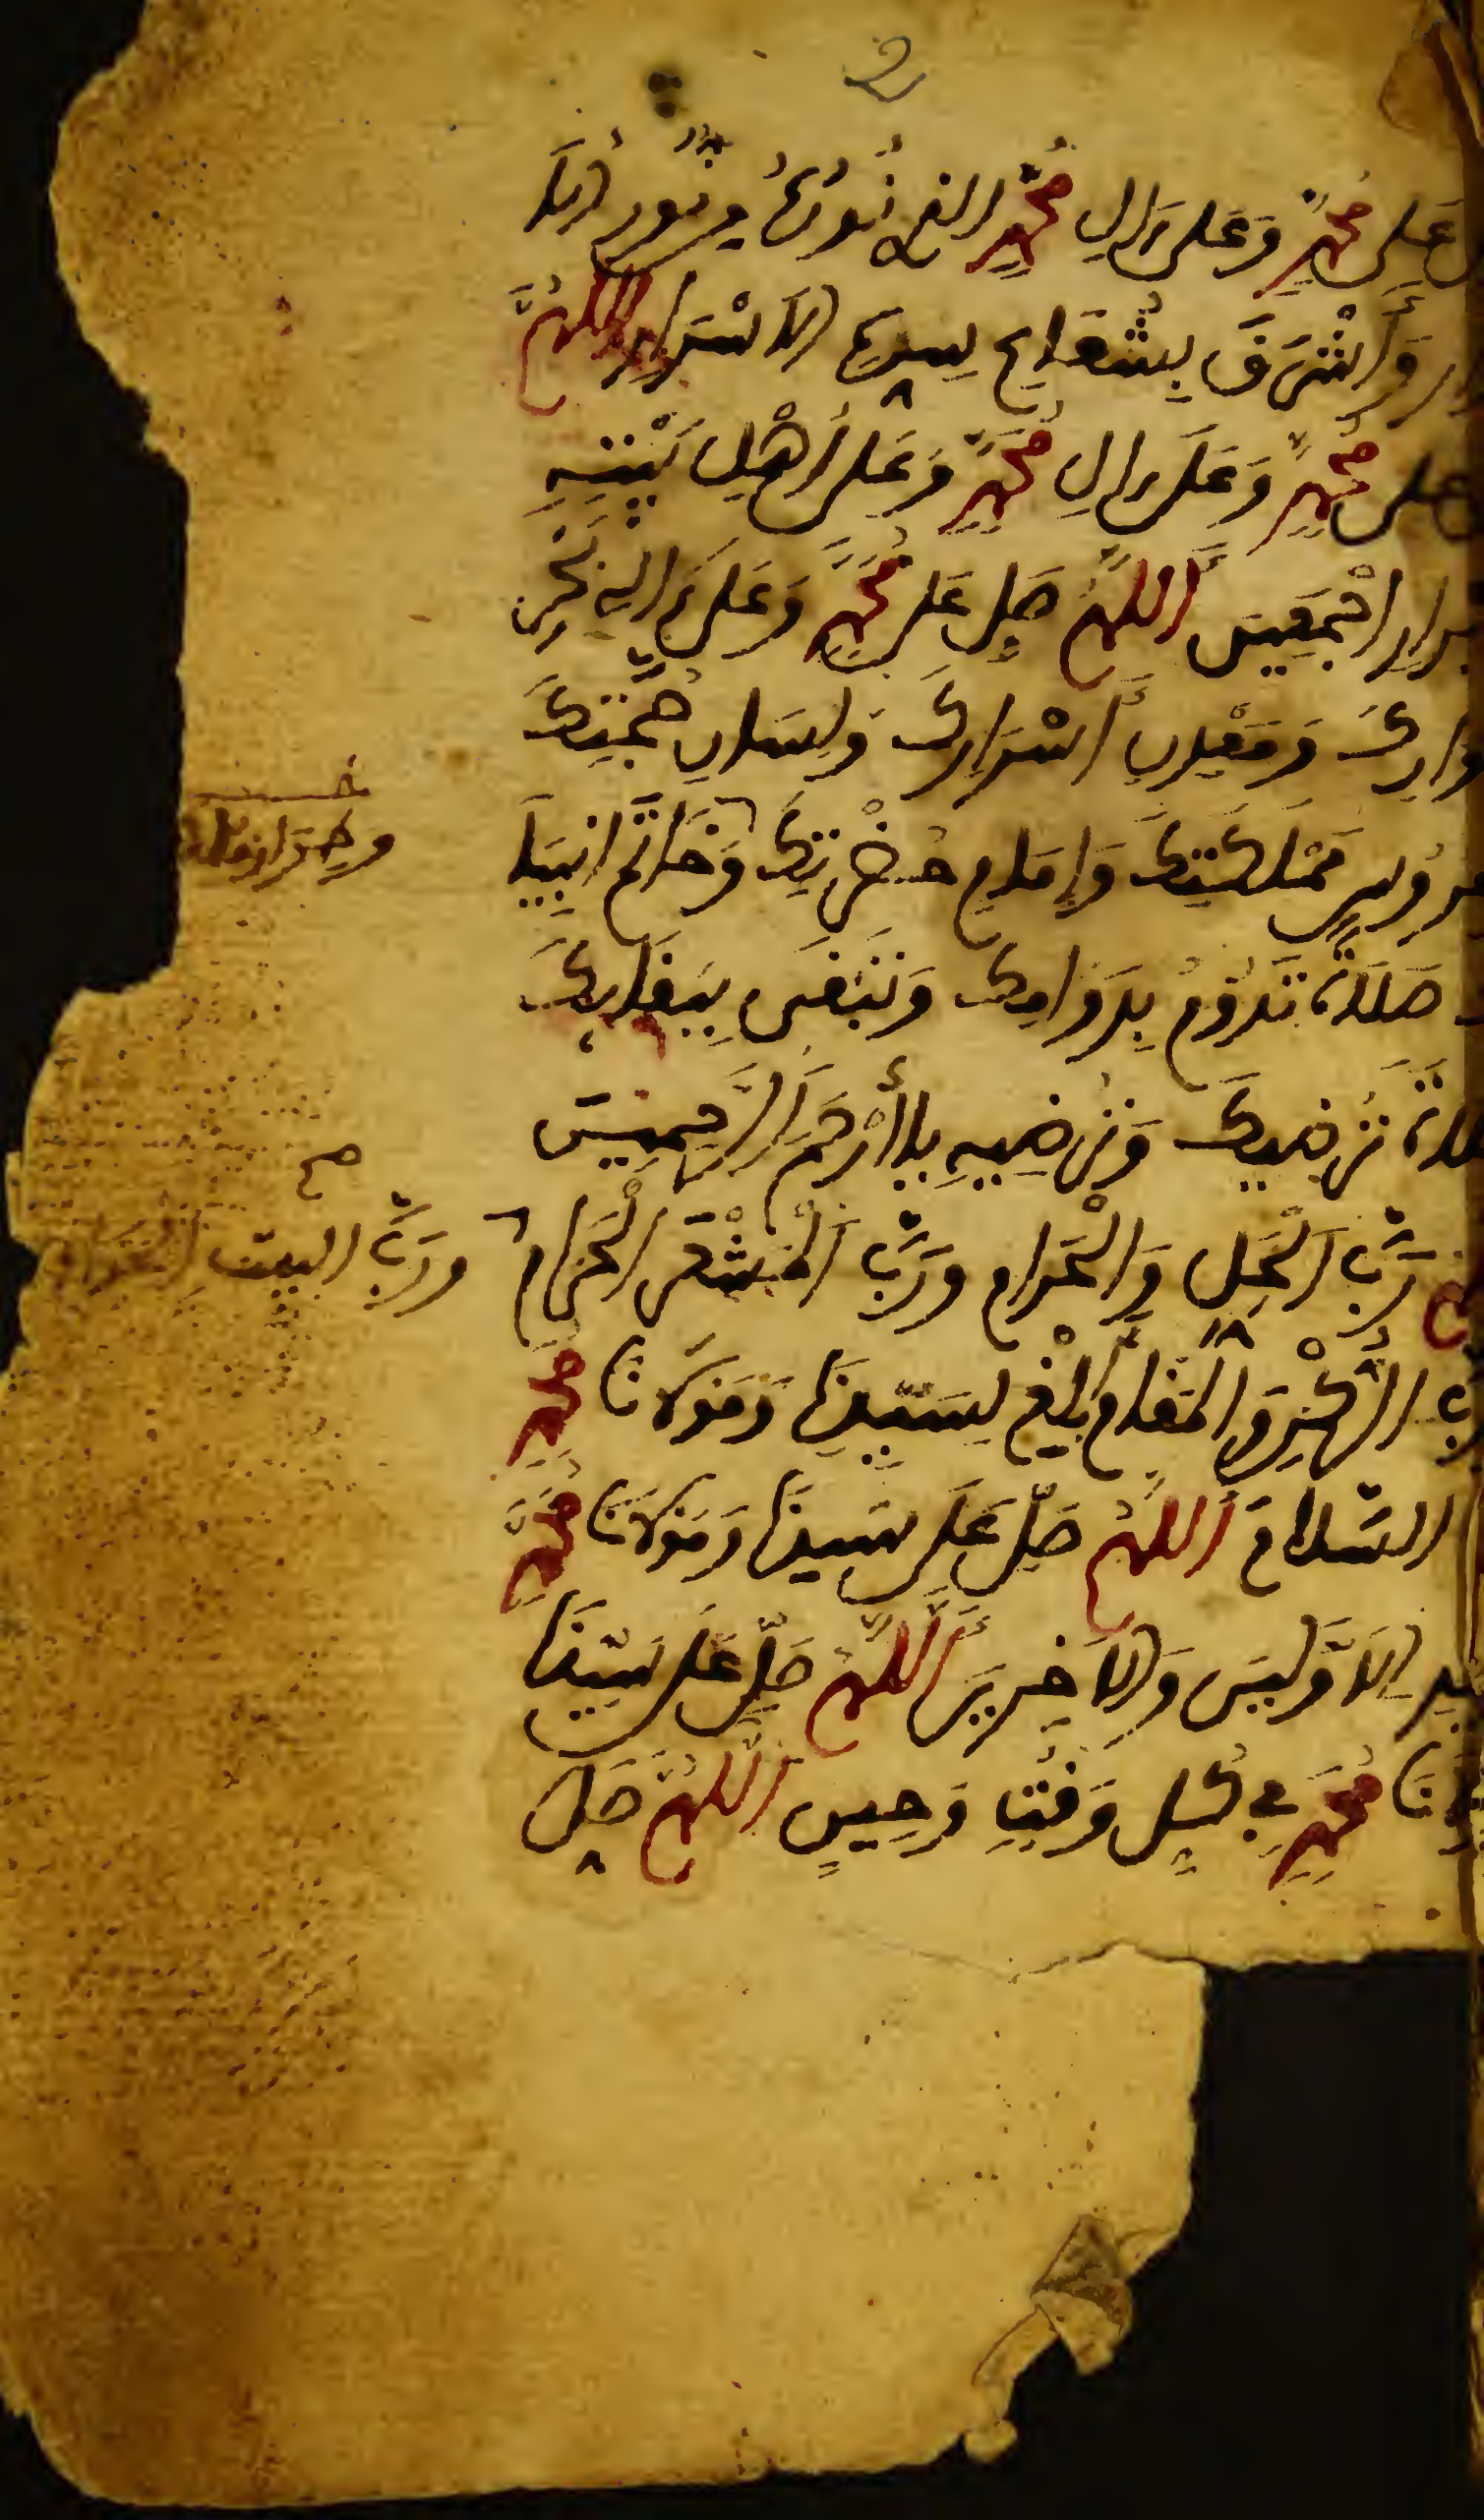 عَلَى مُحَمَّدٍ وَعَلَى ءَالِ مُحَمَّدٍ الذى نُورُهُ مِن نُورِ الَا
وَأَشْرَقَ بِشُعَاعِ سِرِّهِ الَاسْرَارِ اللَّهُمَّ
عَلَى مُحَمَّدٍ وَعَلَى ءَالِ مُحَمَّدٍ وَعَلَى أَهْلِ بَيْتِهِ
برارِ اجْمَعِينَ اللَّهُمَّ صَلِّ عَلَى مُحَمَّدٍ وَعَلَى ءَالِهِ بَحْرِ
وَارِكَ وَمَعْدِنِ أَسْرَارِكَ وَلِسَانِ حُجَّتِكَ
عرُوسِ مَمْلَكَتِكَ وَإِمَامِ حَضْرَتِكَ وَخَاتَمِ انبِيَا
وطراز ملك
صَلَاةً تَدُومُ بِدَوَامِكَ وَتَبْقَى بِبَقَائِكَ
لاة تُرْضِيكَ وَتُرْضِيهِ ياأَرْحَمَ الرَّحِمِينَ
رَبَّ الْحِلِّ وَالْحَرَامِ وَرَبَّ الْمَشْعَرِ الْحَرَامِ
صح
ورَبَّ البيت
بَّ الرُّكْنِ وَالْمَقَامِ أَبْلِغْ لِسَيِّدِنَا وَمَوْلَانَا مُحَمَّدٍ
السَّلَامَ اللَّهُمَّ صَلِّ عَلَى سَيِّدِنَا وَمَوْلَانَا مُحَمَّدٍ
يِّدِ الَاوَّلِينَ وَالَاخِرِينَ اللَّهُمَّ صَلِّ عَلَى سَيِّدِنَا
لَانَا مُحَمَّدٍ فِي كُلِّ وَقْتٍ وَحِينٍ اللَّهُمَّ صَلِّ